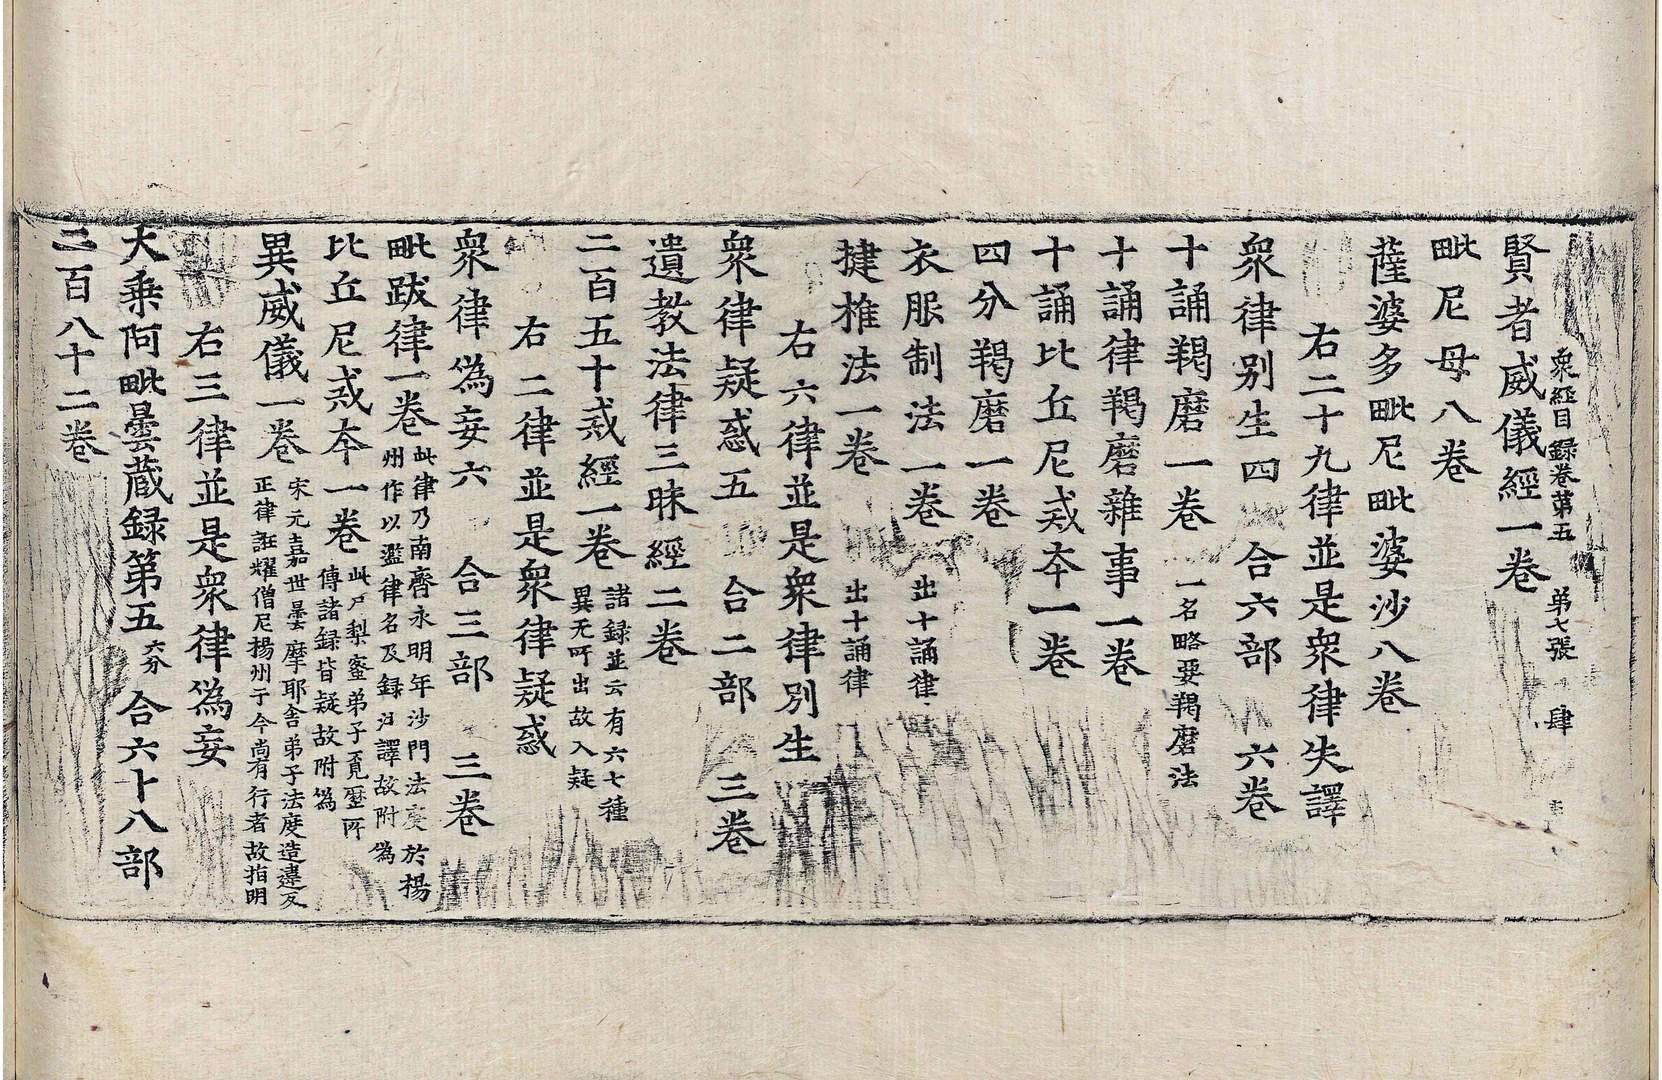 衆經目録卷苐五　苐七張　肆
賢者威儀經一卷
毗尼母八卷
薩婆多毗尼毗婆沙八卷
右二十九律並是衆律失譯
衆律别生四　合六部　六卷
十誦羯磨一卷 一名略要羯磨法
十誦律羯磨雜事一卷
十誦比丘尼戒夲一卷
四分羯磨一卷
衣服制法一卷 出十誦律
揵椎法一卷 出十誦律
右六律並是衆律别生
衆律疑惑五　合二部　三卷
遺教法律三昧經二卷
二百五十戒經一卷 諸録並云有六七種異无所出故入疑
右二律並是衆律疑惑
衆律偽妄六　合三部　三卷
毗跋律一卷 此律乃南齊永明年沙門法度於揚州作以濫律名及録注譯故附偽
比丘尼戒夲一卷 此尸梨蜜弟子覓歷所傳諸録皆疑故附偽
異威儀一卷 宋元嘉世曇摩耶舍弟子法度造違反正律誑耀僧尼揚州于今尚有行者故指明
右三律並是衆律偽妄
大乗阿毗曇蔵録第五 六分 合六十八部
二百八十二卷